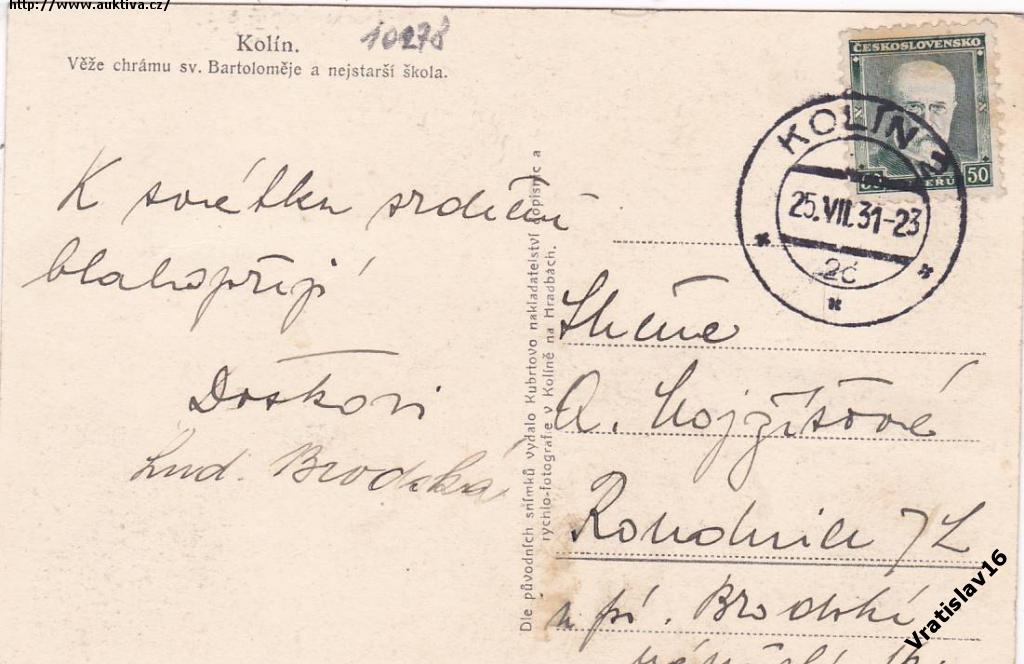 http://www.auktiva.cz/
Kolín.
10278
Věže chrámu sv. Bartoloměje a nejstarší škola.
K svátku srdečně
blahopřejí
Doškovi
Lud. Brodská
Dle původních snímků vydalo Kubrtovo nakladatelství dopisnic a
rychlo-fotografie v Kolíně na Hradbách.
ČESKOSLOVENSKO
50
KOLÍN
25.VII.31-23
2c
Slečně
A. Mojžíšové
Roudnice /L
u pí. Brodské
Vratislav16